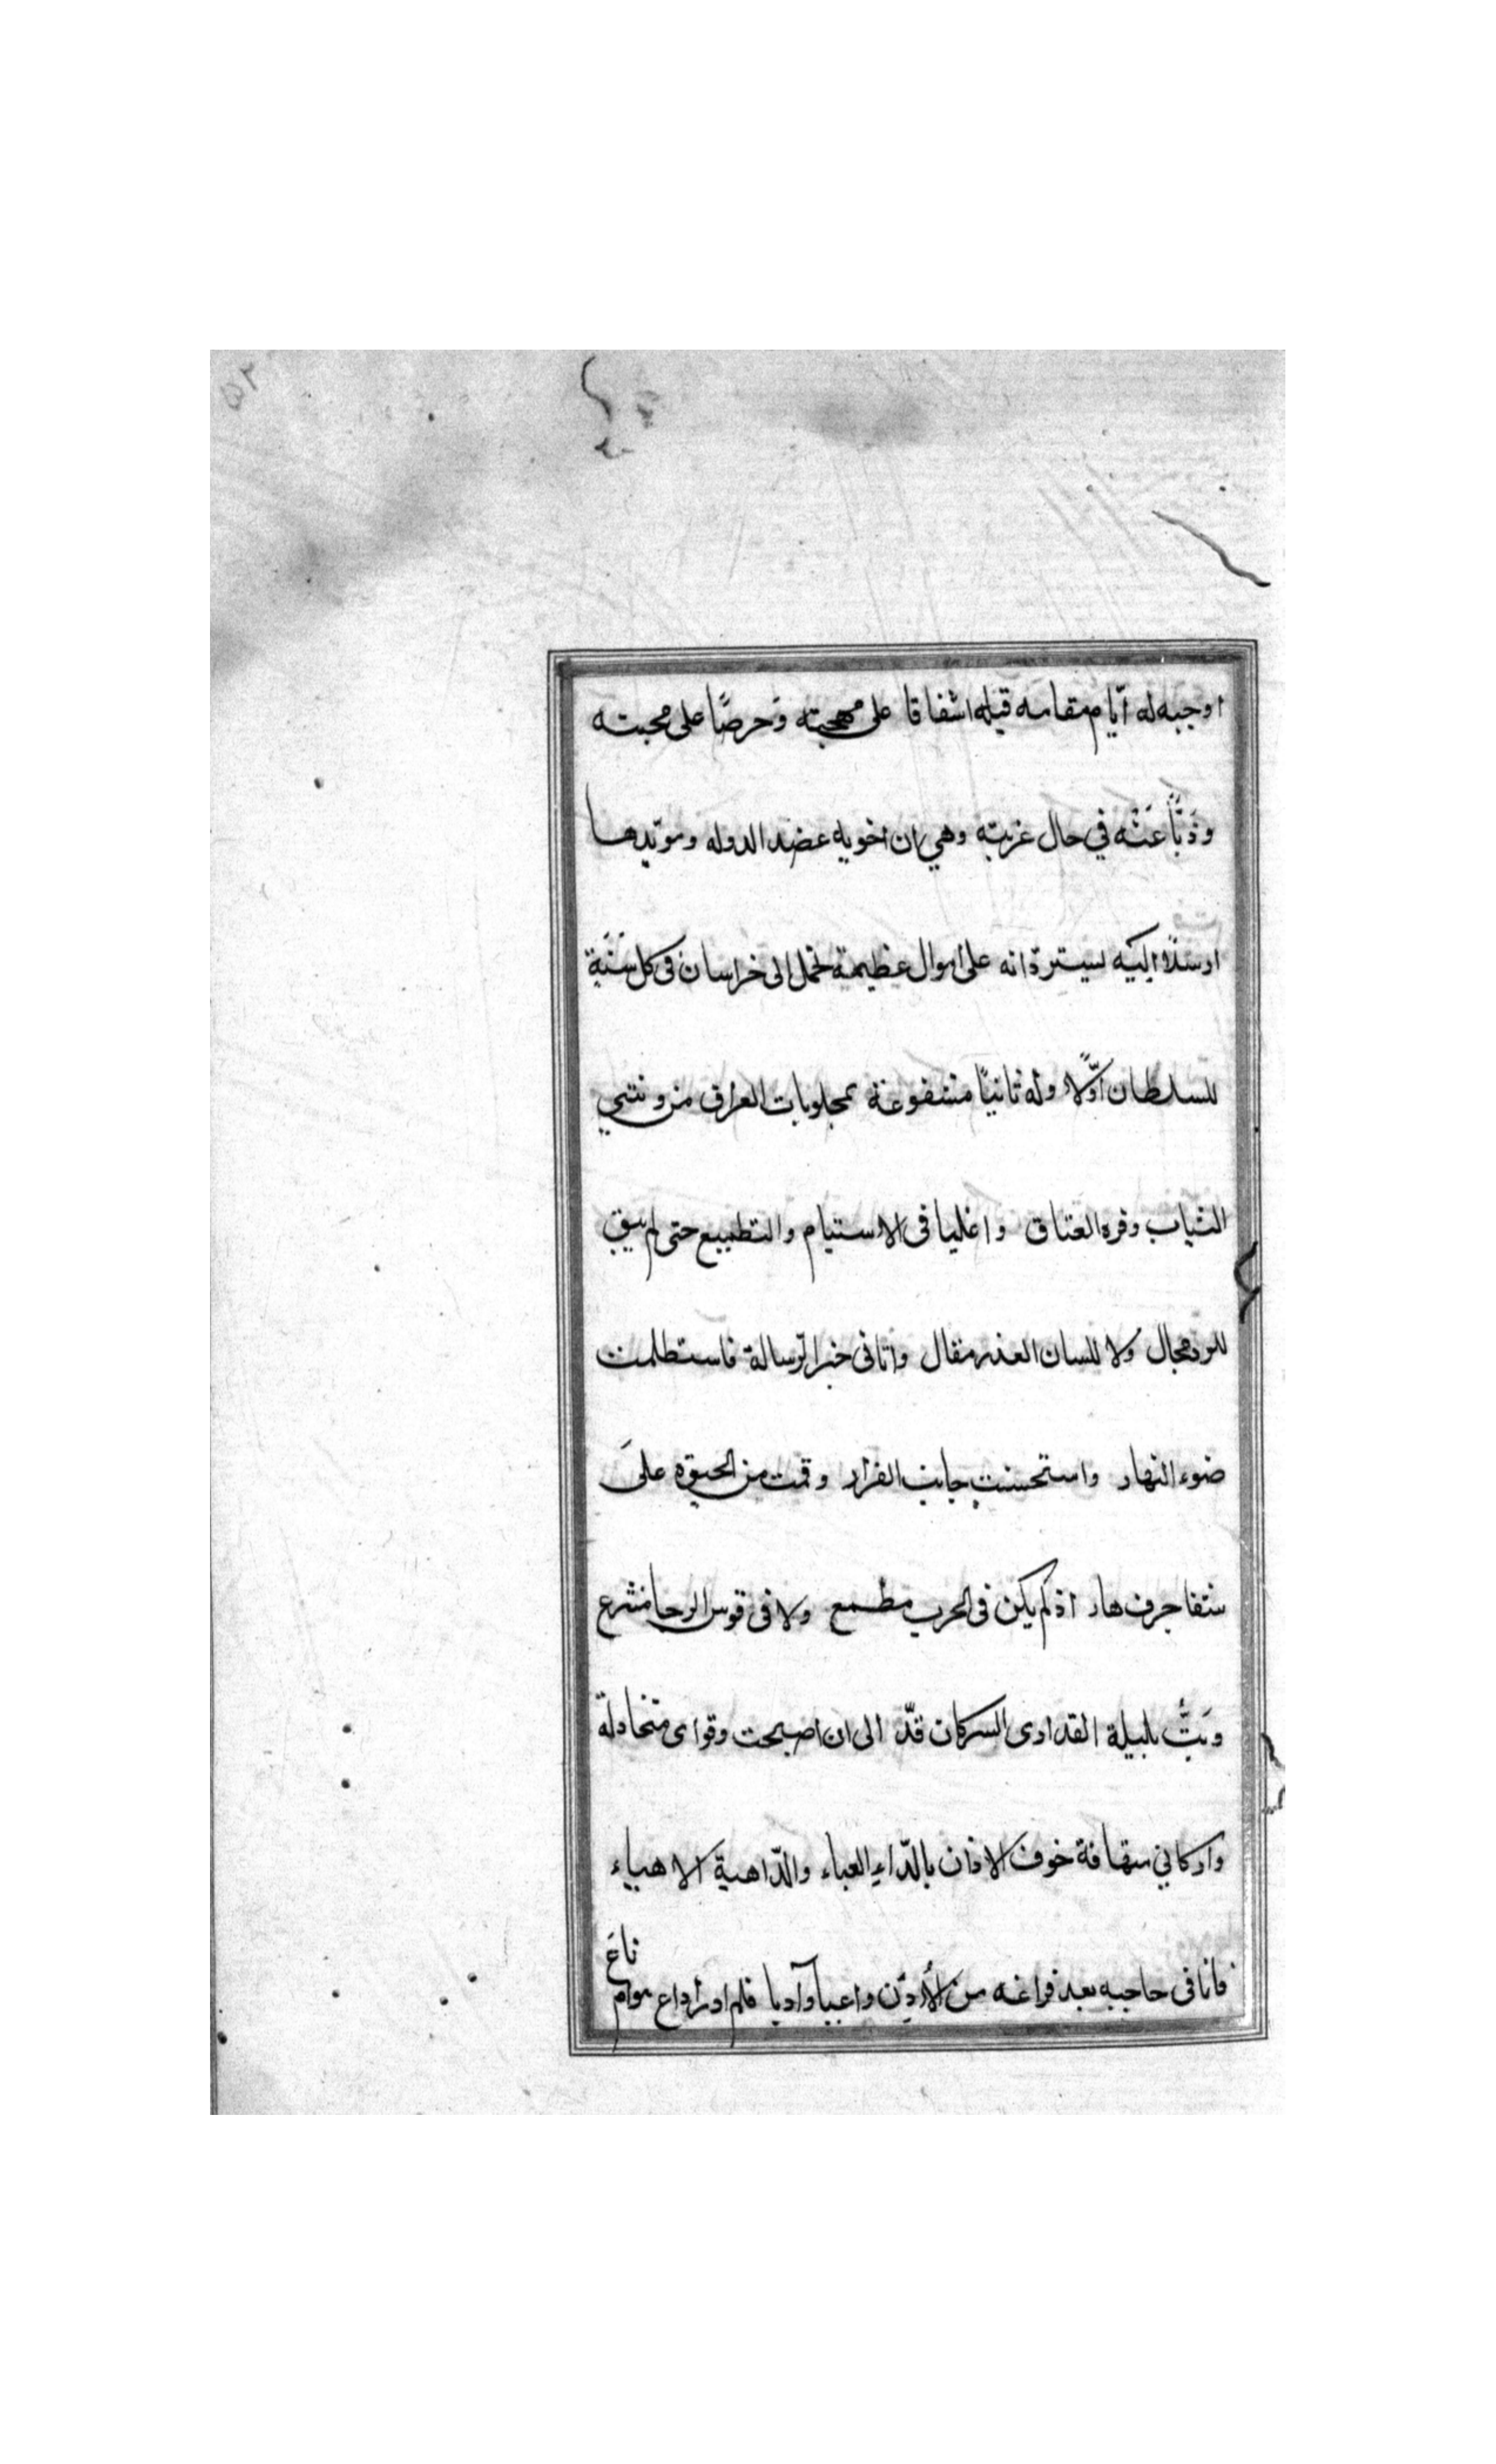 ٢٥
اوجبه له ايّام مقامه قبله اشفاقا على مهجته وَحرصًا على محبته
وذَبًّا عَنْه في حال غربته وهي ان اخويه عضد الدوله ومويّدها
ارسلا اليَه ليسترداَنه على اموال عظيمة تحمل الى خراسان فى كل سَنَةٍ
للسلطان اوّلًا وله ثانيًا مشفوعة بمجلوبات العراق من وشي
الثياب وفره العتاق واغليا فى الاستيام والتطبيع حتى لم يبق
للرد مجال ولا للسان العذر مقال واتانى خبر الرّسالة فاستظلمت
ضوء النهار واستحسنت جانب الفرار وقمت من الحيوة علىَ
شفا جرف هار اذ لم يكن فى الحرب مطمع ولا فى قوس الرجا منزع
وَبتُّ بليلة القد ادى السركان قدّ الى ان اصبحت وقواى متخاذلة
واركاني متهافة خوف الاذان بالدّاء العياء والدّاهية الاهياء
فاتانى حاجبه بعد فراغه من الأذيّن واعبيا وآديا فلم ادر أداع هوام
ناعَ